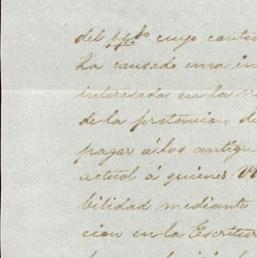 del pp.do cuyo conten
ha causado una in
interesados en la
de la pretencion de
pagar á los antigu
actual á quienes V
bilidad mediante
cion en la Escritur